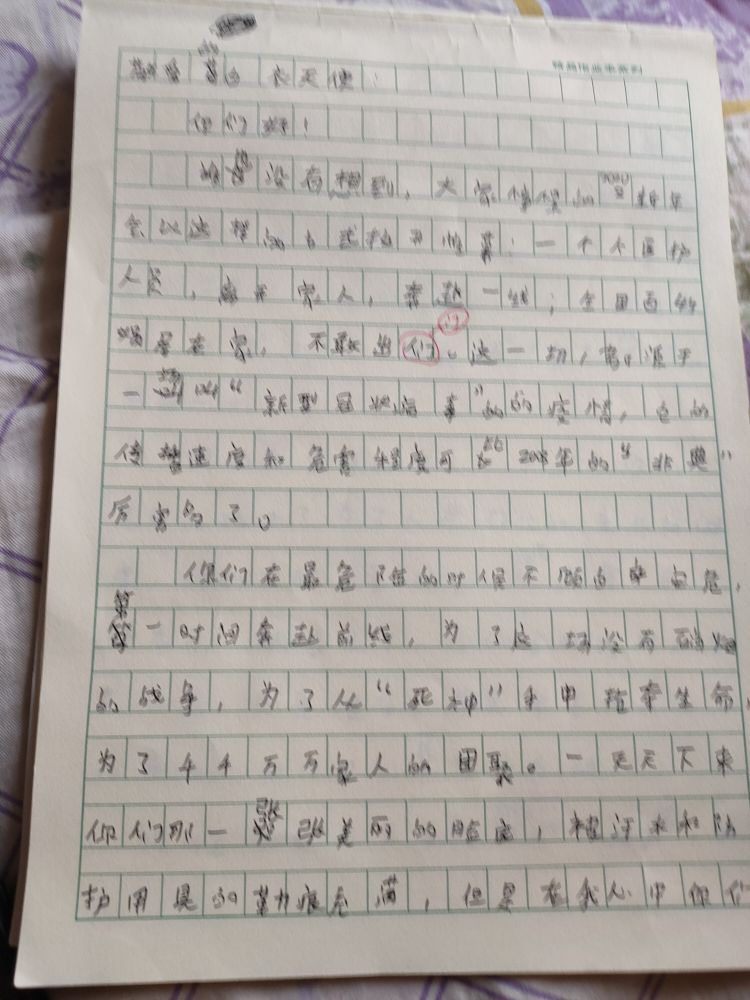 白衣天使：
你们好！
没有想到，大家的新年
会以这样的方式拉开帷幕：一个个医护
人员，离开家人，奔赴一线；全国百姓
蜗居在家，不敢出们。这一切，都源于
门
一场叫“新型冠状病毒”的的疫情，它的
传播速度和危害程度可比2003年的“非典”
厉害多了。
你们在最危险的时候不顾自身安危，
第一时间奔赴前线，为了这场没有硝烟
的战争，为了从“死神”手中抢夺生命，
为了千千万万家人的团聚。一天天下来
你们那一张张美丽的脸庞，被汗水和防
护用具的勒痕充满，但是在我心中你们